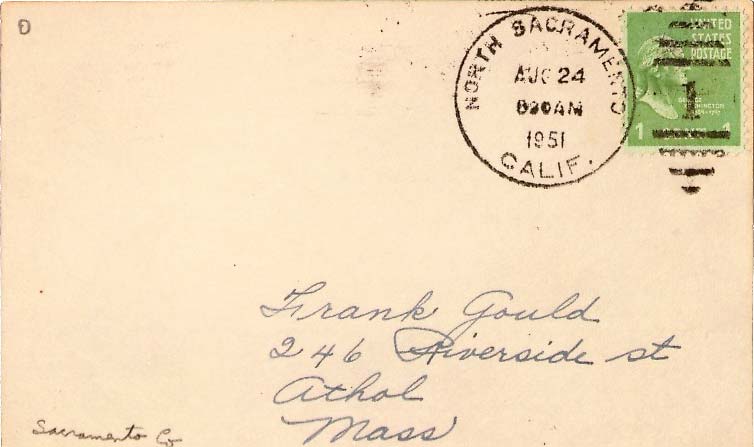 D
NORTH SACRAMENTO
AUG 24
1951
CALIF.
UNITED
STATES
POSTAGE
GEORGE
WASHINGTON
1 1
1
Frank Gould
246 Riverside st
Athol
Mass
Sacramento Co